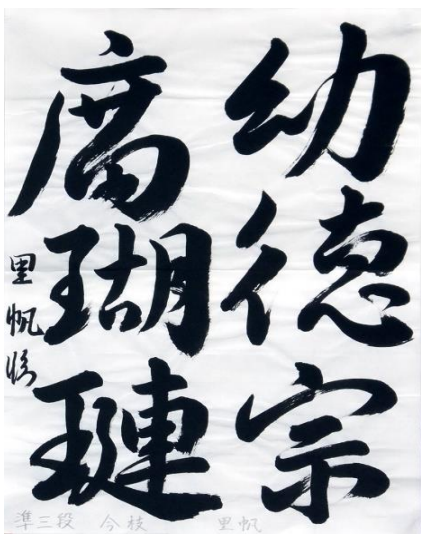 幼徳宗
庿瑚璉
里帆臨
準三段 今枝 里帆